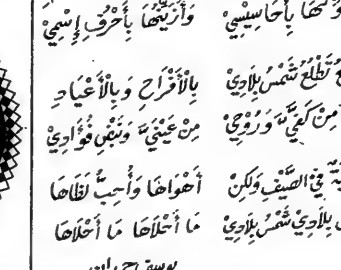 وَأُزَيِّنُهَا بِأَحْرُفِ إِسْمِيْ
تَطْلُعُ شَمْسُ بِلَادِيْ بِالْأَفْرَاحِ وَبِالْأَعْيَادِ
مِنْ كَفَّيَّ وَرُوْحِيْ مِنْ عَيْنَيَّ وَنَبْضِ فُؤَادِيْ
فِيْ الصَّيْفِ وَلَكِنْ أَهْوَاهَا وَأُحِبُّ لَظَاهَا
بِلَادِيْ شَمْسُ بِلَادِيْ مَا أَحْلَاهَا مَا أَحْلَاهَا